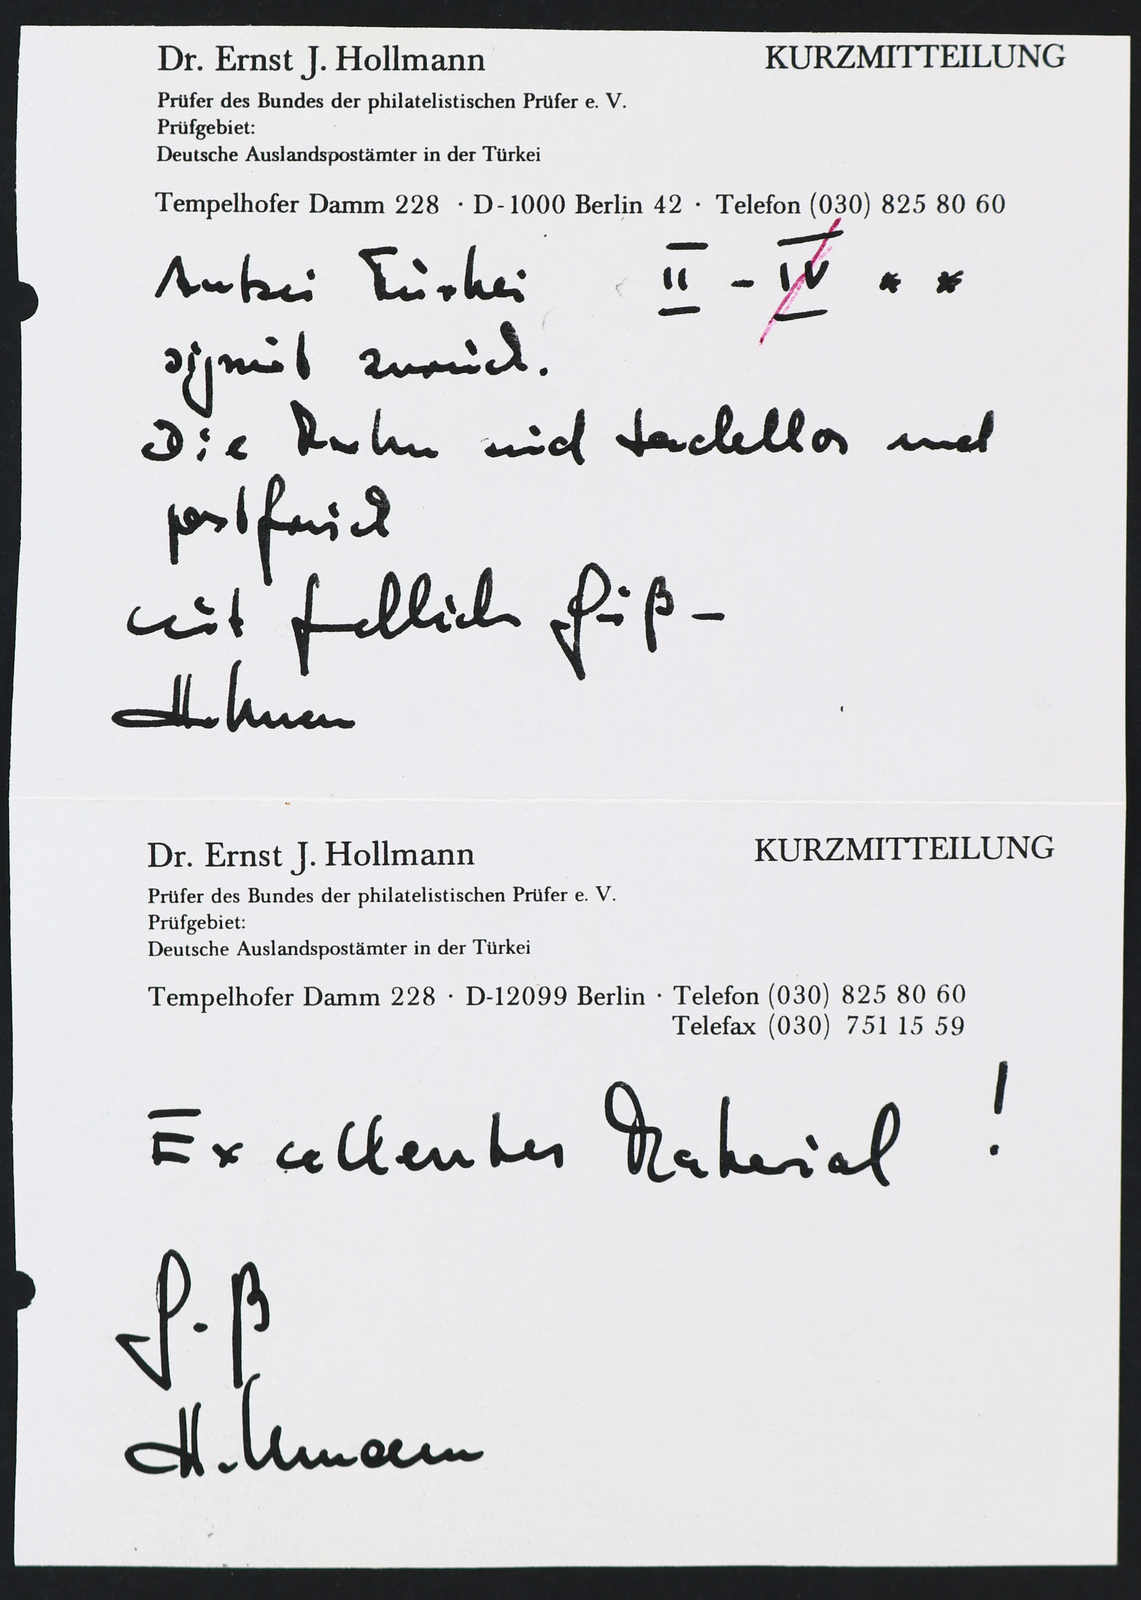 Dr. Ernst J. Hollmann KURZMITTEILUNG
Prüfer des Bundes der philatelistischen Prüfer e. V.
Prüfgebiet:
Deutsche Auslandspostämter in der Türkei
Tempelhofer Damm 228 · D-1000 Berlin 42 · Telefon (030) 825 80 60
Anbei Türkei II - IV * *
signiert zurück.
Die Marken sind tadellos und
postfrisch
mit freundlichen Grüßen
Hollmann
Dr. Ernst J. Hollmann KURZMITTEILUNG
Prüfer des Bundes der philatelistischen Prüfer e. V.
Prüfgebiet:
Deutsche Auslandspostämter in der Türkei
Tempelhofer Damm 228 · D-12099 Berlin · Telefon (030) 825 80 60
Telefax (030) 751 15 59
Excellentes Material !
Gruß
Hollmann